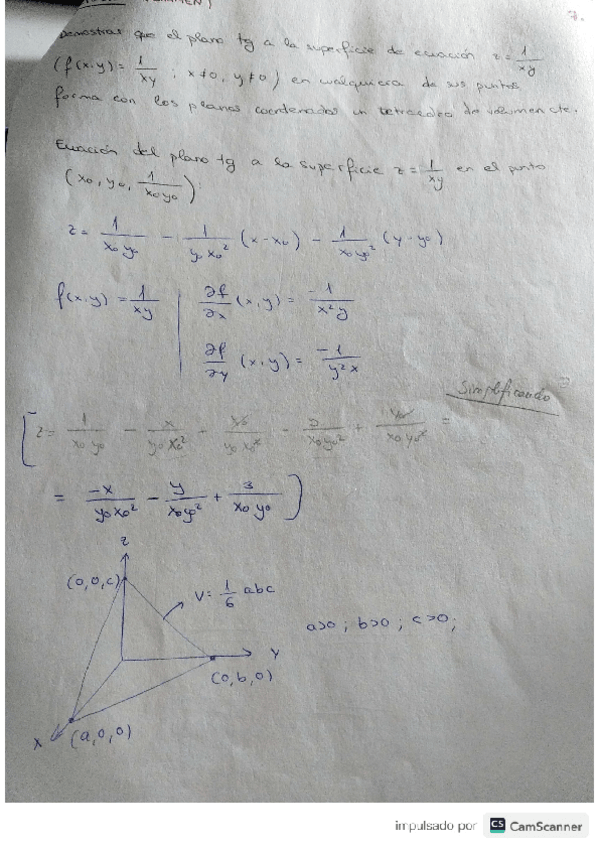 7.
Demostrar que el plano tg a la superficie de ecuación z = 1/xy
(f(x,y) = 1/xy ; x≠0, y≠0) en cualquiera de sus puntos
forma con los planos coordenados un tetraedro de volumen cte.
Ecuación del plano tg a la superficie z = 1/xy en el punto
(x₀, y₀, 1/x₀y₀):
z = 1/x₀y₀ - 1/y₀x₀² (x-x₀) - 1/x₀y₀² (y-y₀)
f(x,y) = 1/xy | ∂f/∂x (x,y) = -1/x²y
∂f/∂y (x,y) = -1/y²x
Simplificando
[z = 1/x₀y₀ - x/y₀x₀² + x₀/y₀x₀² - y/x₀y₀² + y₀/x₀y₀² =
= -x/y₀x₀² - y/x₀y₀² + 3/x₀y₀)
z
(0,0,c)
V = 1/6 abc
a>0 ; b>0 ; c>0;
y
(0,b,0)
x
(a,0,0)
impulsado por CS CamScanner